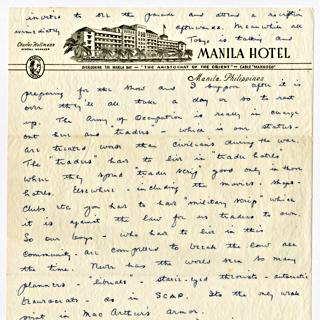 invites to see the parade and attend a reception
immediately afterwards. Meanwhile all
Tokyo is talking and
Charles Hollmann
GENERAL MANAGER
MANILA HOTEL
OVERLOOKING THE MANILA BAY — "THE ARISTOCRAT OF THE ORIENT" — CABLE "MANHOCO"
Manila, Philippines
preparing for the show and I suppose after it is
over they'll all take a day or so to rest
up. The Army of Occupation is really in charge
out here and traders - which is our status -
are treated worse than civilians during the war.
The "traders" have to live in "trader hotels"
where they spend "trader scrip" good only in those
hotels. Elsewhere - including the movies - shops -
clubs etc you have to have "military scrip" which
it is against the law for us traders to own.
So our boys - who have to live in this
community - are compelled to break the law all
the time. Never has the world seen so many
planners - "liberals" - starry-eyed theorists - automatic
beaurocrats - as in SCAP. Its the only weak
point in Mac Arthurs armor.